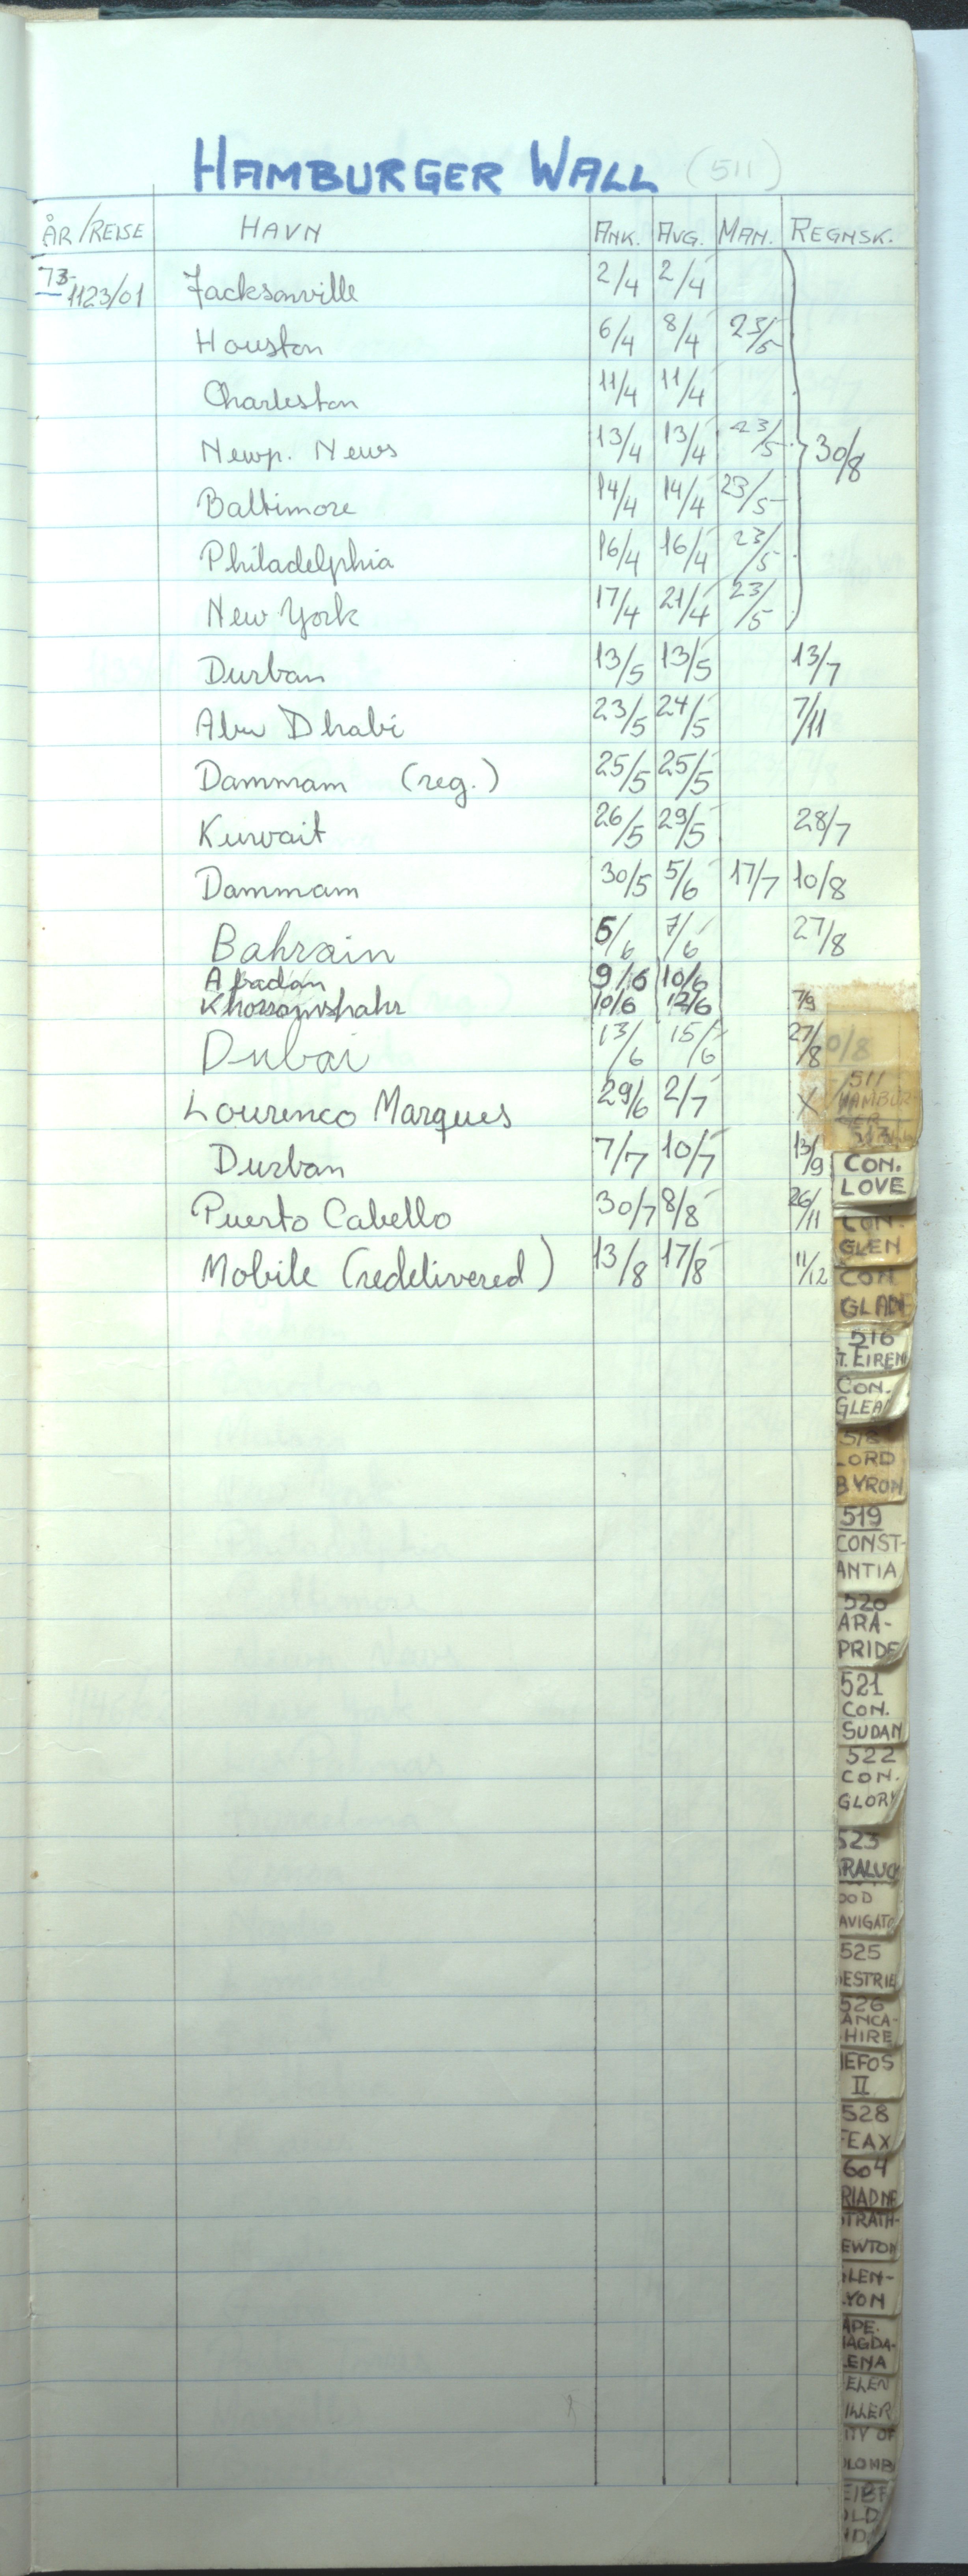 HAMBURGER WALL (511)
ÅR/REISE HAVN ANK. AVG. MAN. REGNSK.
73-1123/01 Jacksonville 2/4 2/4
Houston 6/4 8/4 23/5
Charleston 11/4 11/4
Newp. News 13/4 13/4 23/5 30/8
Baltimore 14/4 14/4 23/5
Philadelphia 16/4 16/4 23/5
New York 17/4 21/4 23/5
Durban 13/5 13/5 13/7
Abu Dhabi 23/5 24/5 7/11
Dammam (reg.) 25/5 25/5
Kuwait 26/5 29/5 28/7
Dammam 30/5 5/6 17/7 10/8
Bahrain 5/6 7/6 27/8
Abadan 9/6 10/6
Khorramshahr 10/6 12/6 7/9
Dubai 13/6 15/6 27/8
Lourenco Marques 29/6 2/7 X
Durban 7/7 10/7 13/9
Puerto Cabello 30/7 8/8 26/11
Mobile (redelivered) 13/8 17/8 11/12
511
HAMBUR
CON.
LOVE
CON.
GLEN
CON
GLADE
516
T. EIREN
CON.
GLEA
518
LORD
BYRON
519
CONST-
ANTIA
520
ARA-
PRIDE
521
CON.
SUDAN
522
CON.
GLORY
523
RALUCK
OOD
AVIGATO
525
ESTRIE
526
ANCA-
HIRE
IEFOS
II
528
FEAX
604
RIADNE
TRATH-
EWTON
LEN-
YON
APE.
AGDA-
ENA
ELEN
ILLER
ITY OF
OLOMB